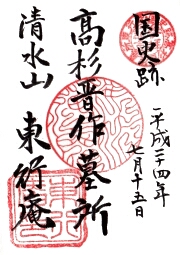 国史跡
平成二十四年
七月十五日
高杉晋作墓所
清水山 東行庵